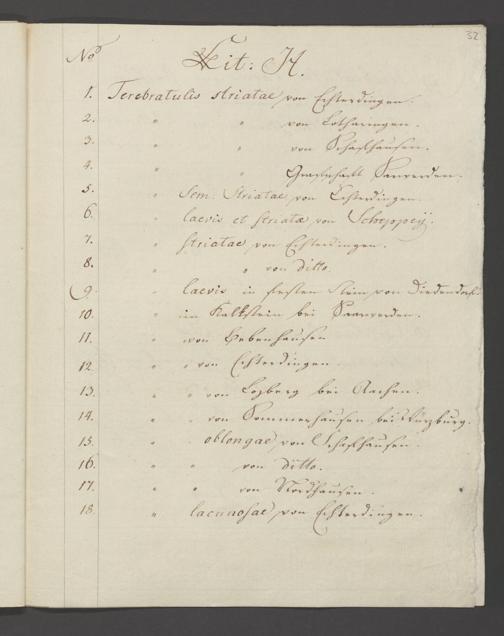 32
No Lit: H.
1. Terebratulis striatae von Echterdingen.
2. " " von Lotharingen.
3. " " von Schafhausen.
4. " " Grafschaft Saarwerden.
5. " Sem. Striatae von Echterdingen.
6. " laevis et striatae von Scheppeÿ.
7. " striatae von Echterdingen.
8. " " von ditto.
9. " laevis in festen Stein von Diedendorf.
10. " im Kalkstein bei Saarwerden.
11. " von Bebenhausen
12. " " von Echterdingen.
13. " " von Losberg bei Aachen.
14. " " von Sommerhausen bei Würzburg.
15. " oblongae von Schafhausen.
16. " " von ditto.
17. " " von Nordhausen.
18. " lacunosae von Echterdingen.